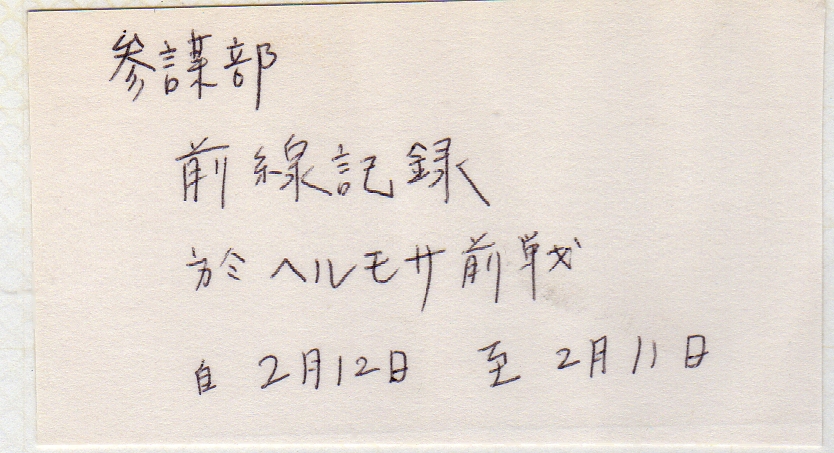 参謀部
前線記録
於ヘルモサ前戦
自 2月12日 至 2月11日